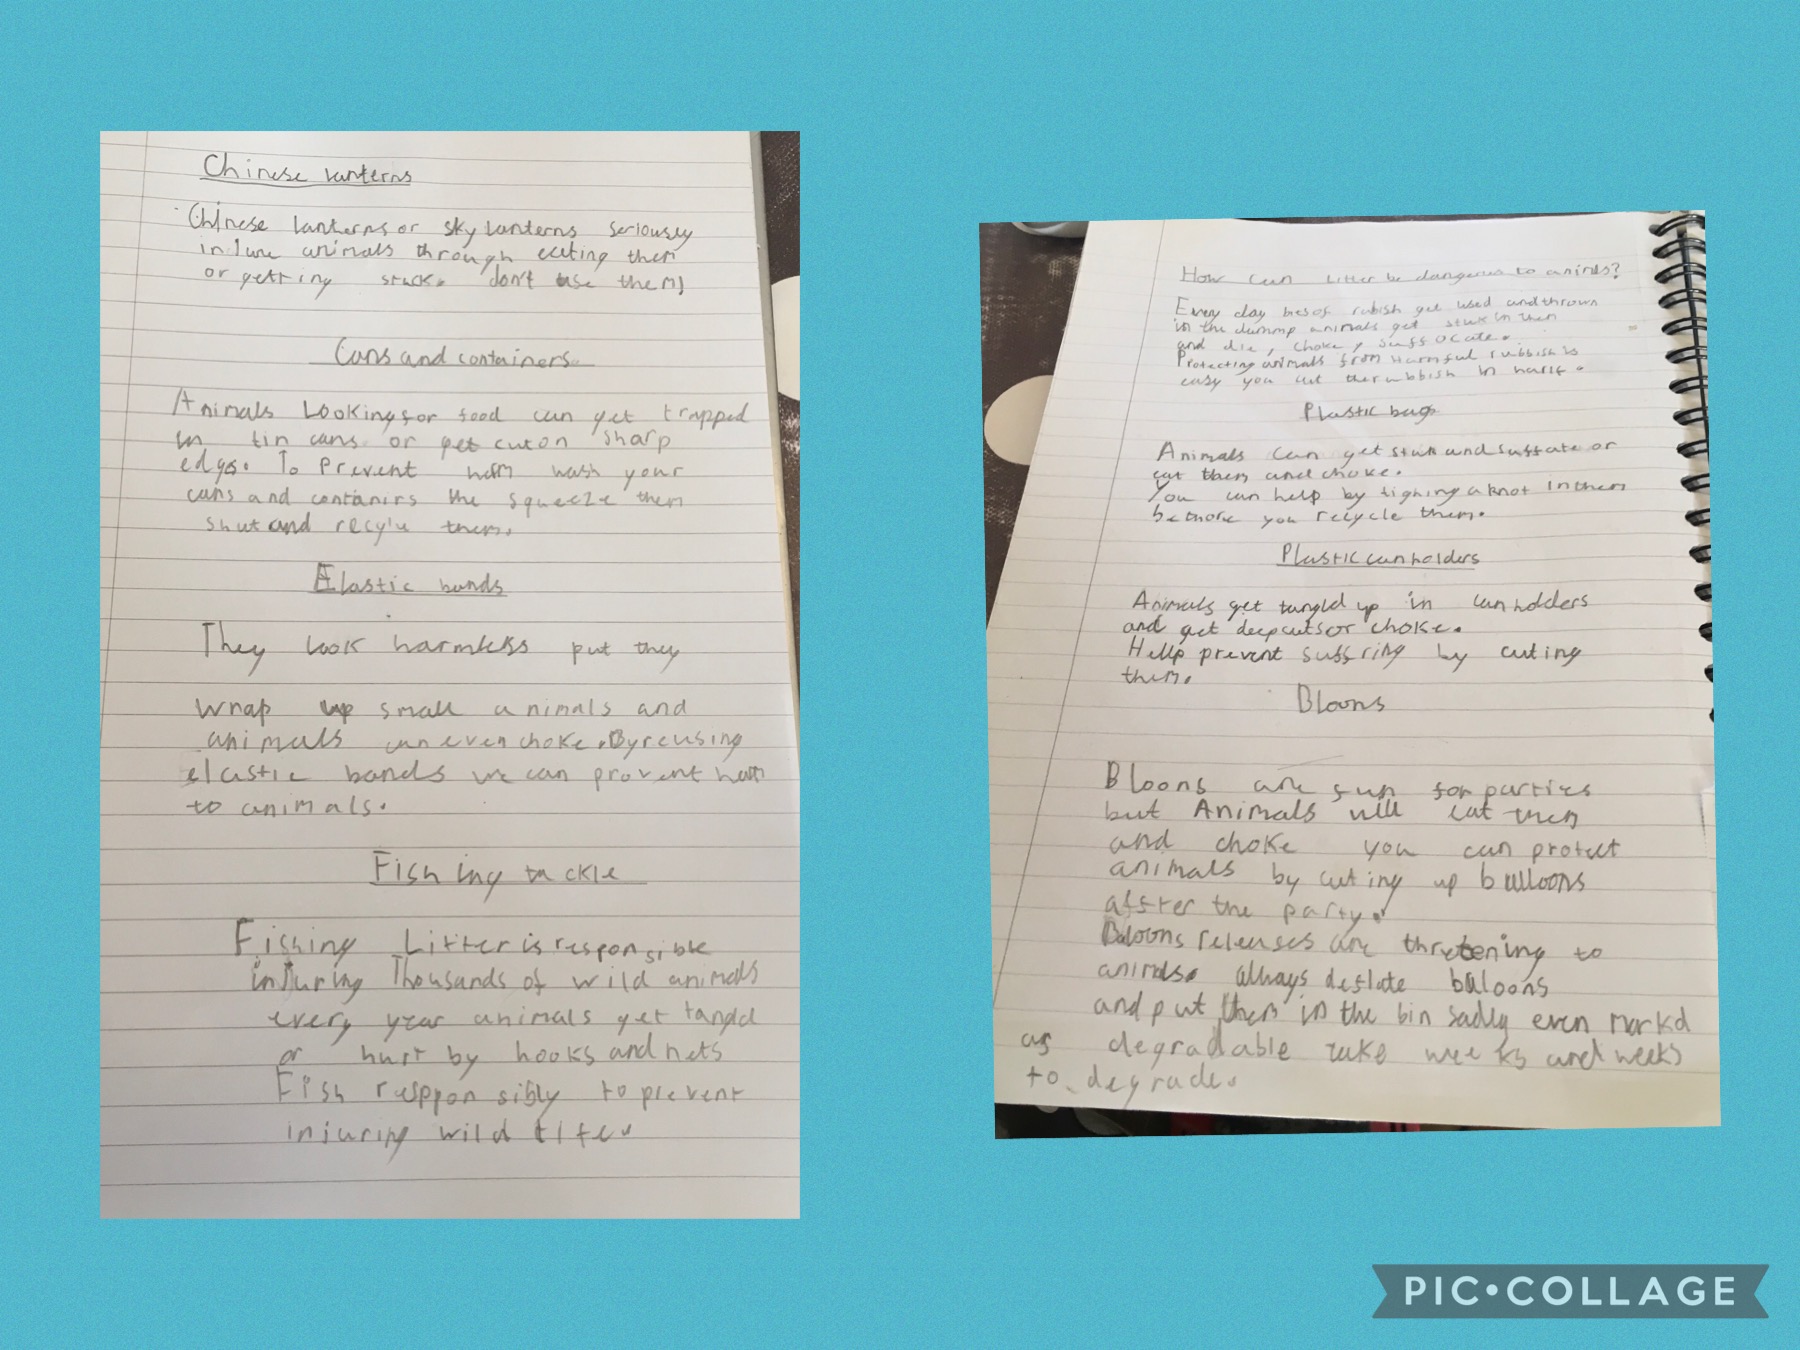 Chinese lanterns
Chinese lanterns or sky lanterns seriously
injure animals through eating them
or getting stuck. don't use them!
Cans and containers
Animals Looking for food can get trapped
in tin cans or get cut on sharp
edges. To Prevent harm wash your
cans and contanirs the squeeze them
shut and recyle them.
Elastic bands
They look harmless put they
wrap up small animals and
animals can even choke. By reusing
elastic bands we can provent harm
to animals.
Fishing tackle
Fishing Litter is responsible
injuring Thousands of wild animals
every year animals get tangld
or hurt by hooks and nets
Fish resppon sibly to prevent
injuring wild life.
How can litter be dangerus to animls?
Every day of rubish get used and thrown
in the dummp animals get stuk in them
and die, choke, suffocate.
Protecting animals from Harmful rubbish is
easy you cut the rubbish in harlf.
Plastic bags
Animals can get stuk and suffate or
eat them and choke.
You can help by tighing a knot in them
bethore you recycle them.
Plastic can holders
Animals get tangld up in can holders
and get deep cuts or choke.
Hellp prevent suffring by cuting
them.
Bloons
Bloons are fun for parties
but Animals will eat them
and choke you can protect
animals by cuting up balloons
affter the party.
Baloons releases are thretening to
animals. always deflate baloons
and put them in the bin sadly even markd
as degradable take weeks and weeks
to degrade.
PIC•COLLAGE